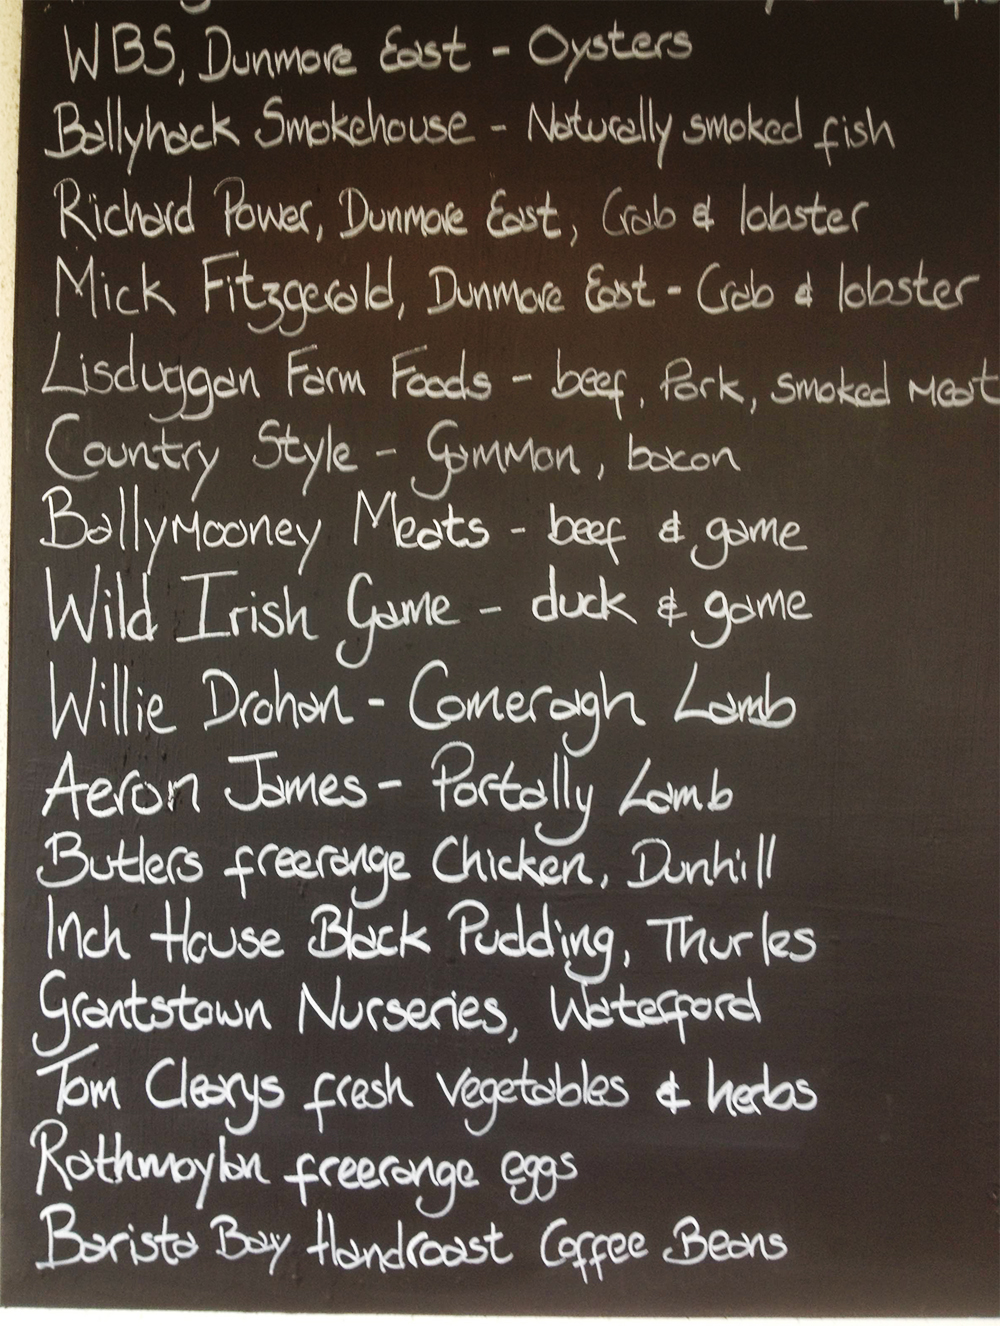 WBS, Dunmore East - Oysters
Ballyhack Smokehouse - Naturally smoked fish
Richard Power, Dunmore East, Crab & lobster
Mick Fitzgerald, Dunmore East - Crab & lobster
Lisduggan Farm Foods - beef, Pork, smoked Meat
Country Style - Gammon, bacon
BallyMooney Meats - beef & game
Wild Irish Game - duck & game
Willie Drohan - Comeragh Lamb
Aeron James - Portally Lamb
Butlers freerange Chicken, Dunhill
Inch House Black Pudding, Thurles
Grantstown Nurseries, Waterford
Tom Clearys fresh vegetables & herbs
Rathmoylan freerange eggs
Barista Bay Handroast Coffee Beans